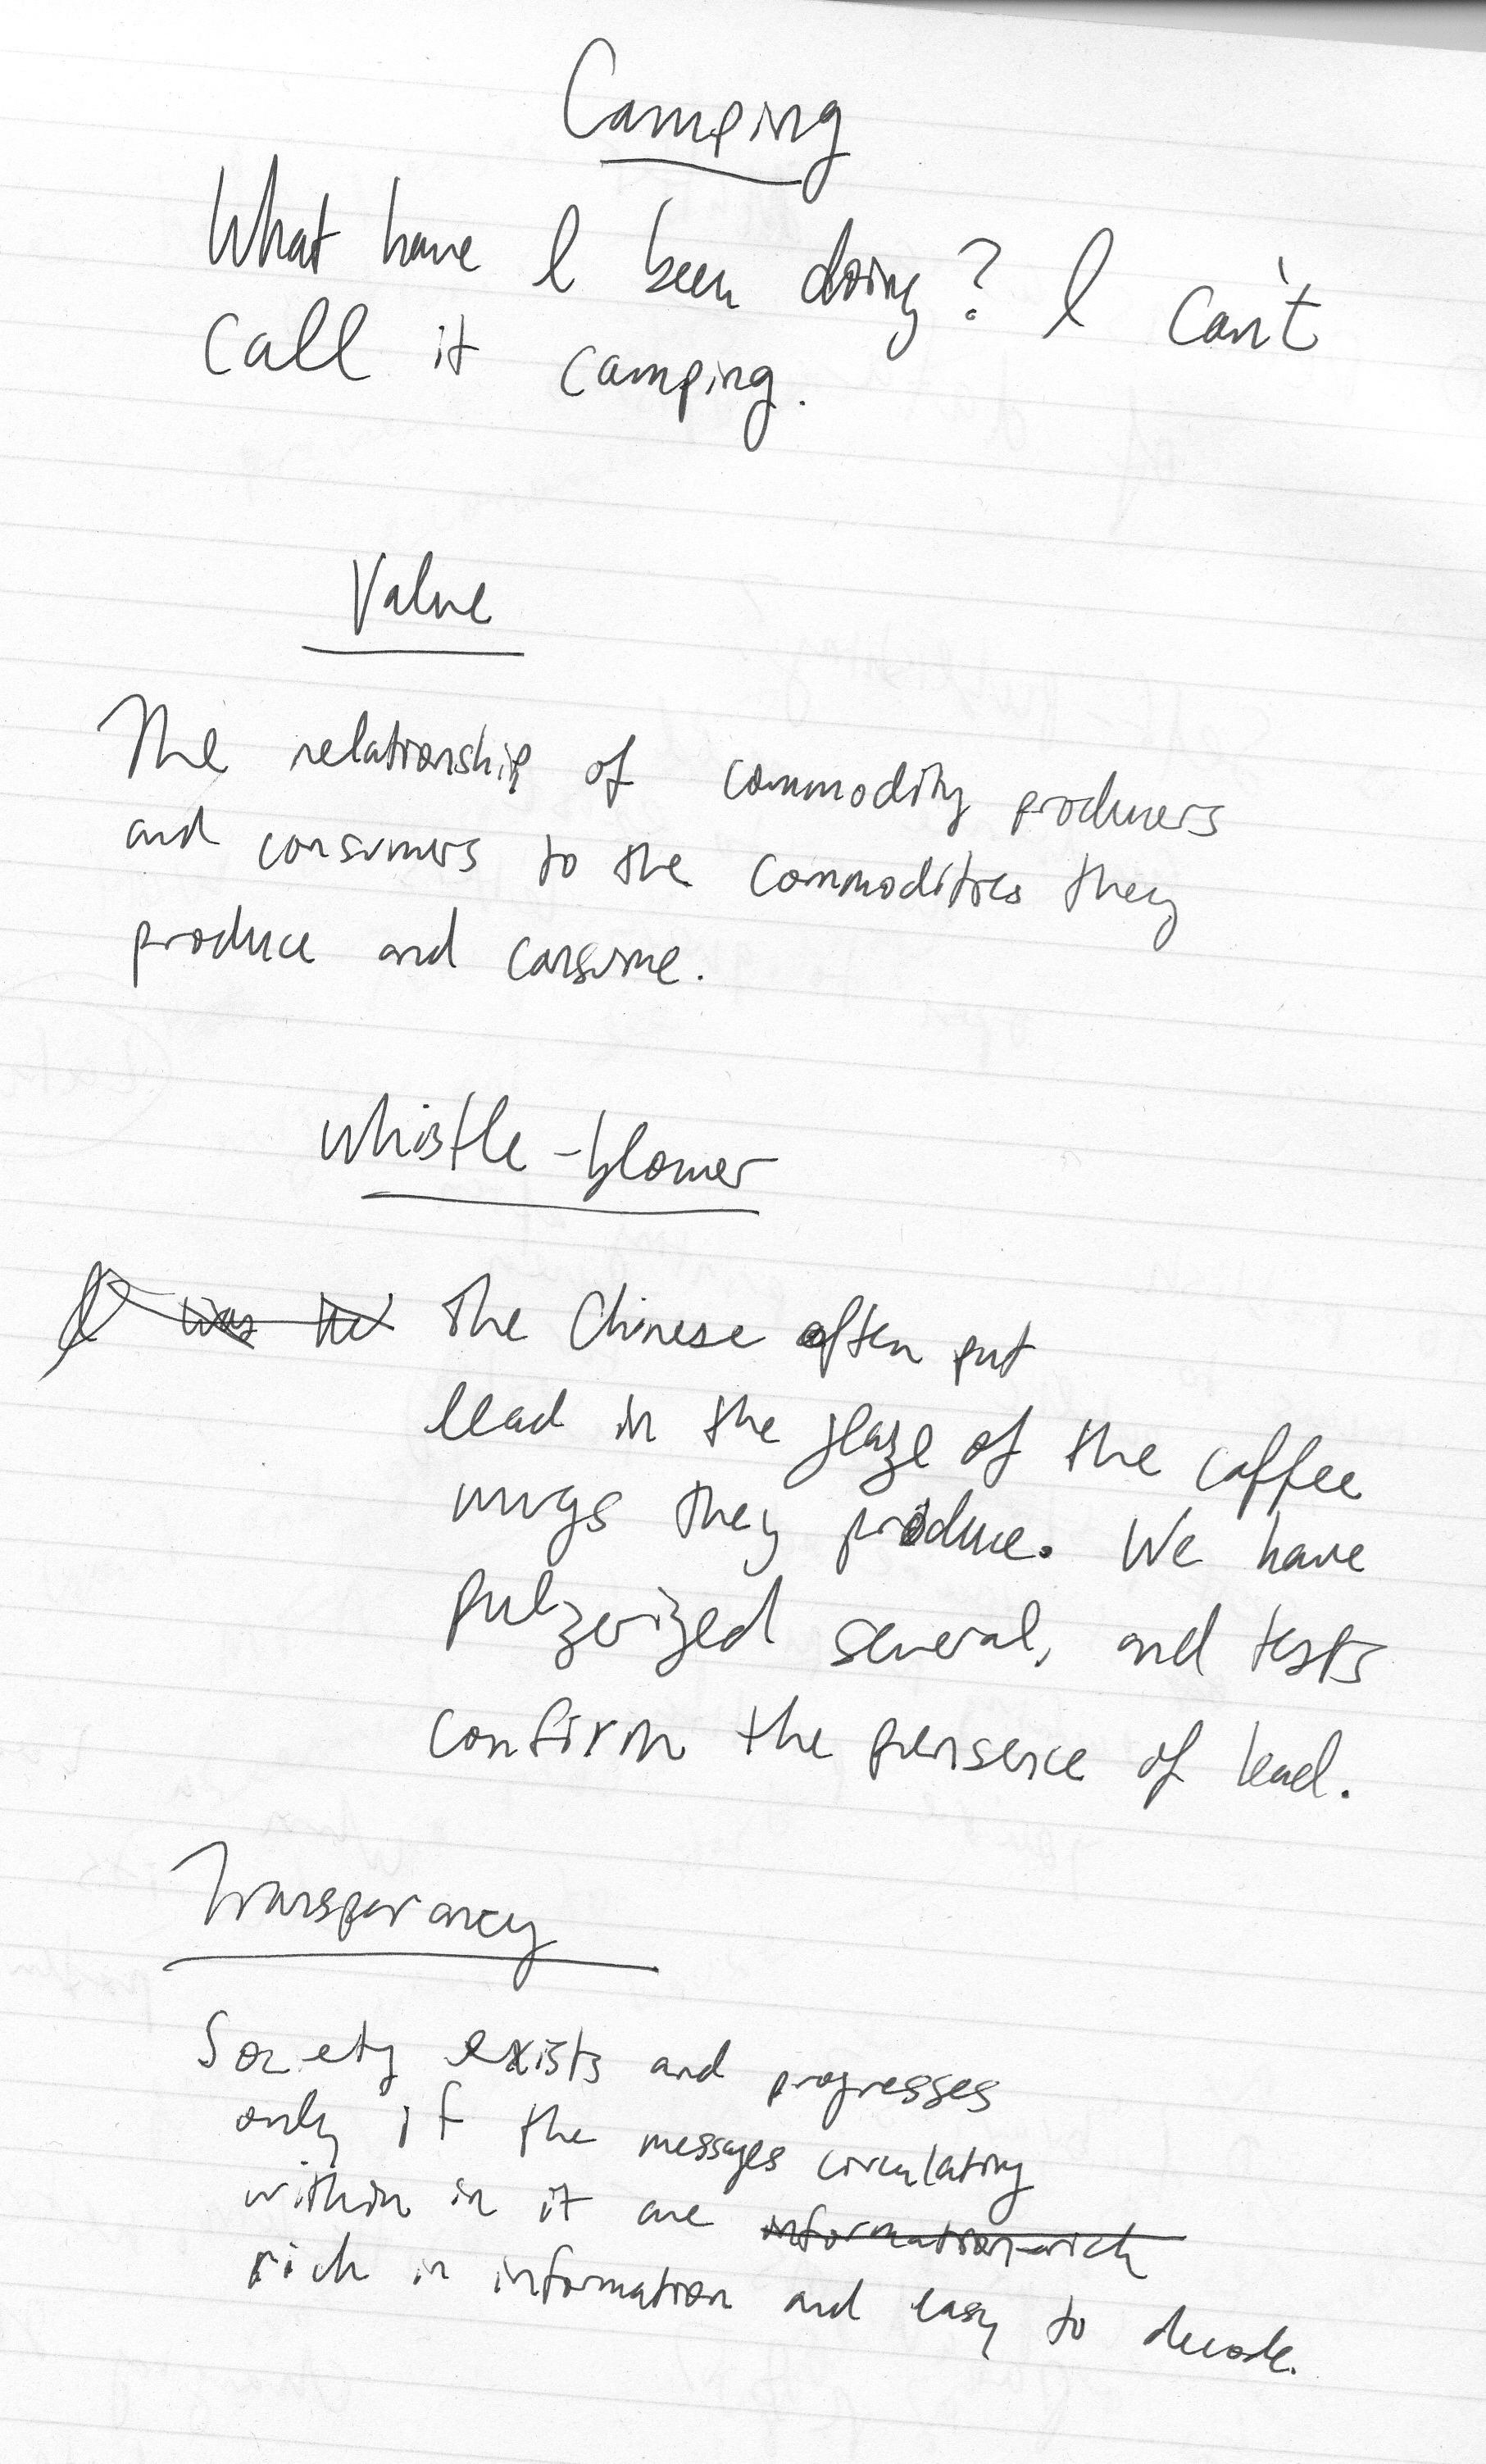 Camping
What have I been doing? I can't
call it camping.
Value
The relationship of commodity producers
and consumers to the commodities they
produce and consume.
Whistle-blower
The Chinese often put
lead in the glaze of the coffee
mugs they produce. We have
pulzerized several, and tests
confirm the pensence of lead.
Transparancy
Society exists and progresses
only if the messages circulating
within in it are information-rich
rich in information and easy to decode.